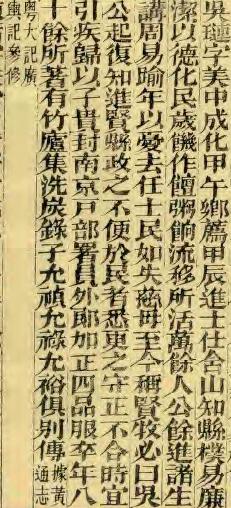 吳璉字美中成化甲午鄉薦甲辰進士仕舍山知縣樸易廉
潔以德化民歲饑作饘粥餉流移所活萬餘人公餘進諸生
講周易踰年以憂去任士民如失慈母至今稱賢牧必曰吳
公起復知進賢縣政之不便於民者悉更之守正不合時宜
引疾歸以子貴封南京戸部署員外郎加正四品服卒年八
十餘所著有竹廬集洗炭錄子允禎允祿允裕俱別傳據黃
通志
粵大記廣
輿記參修